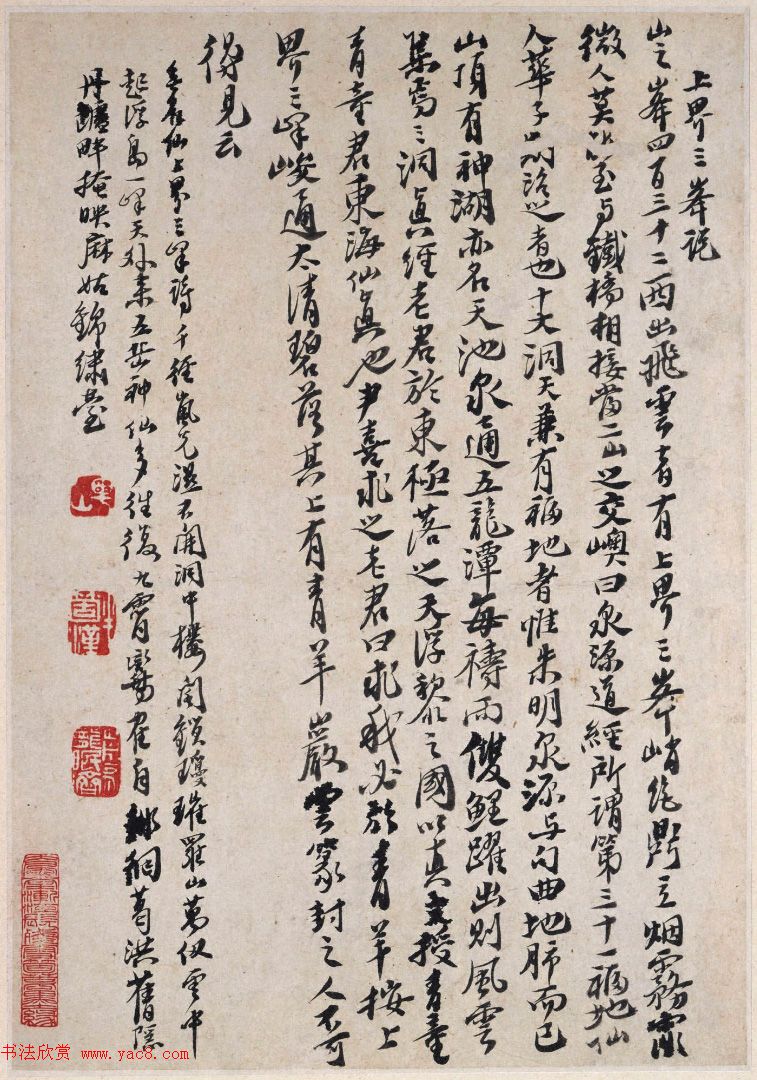 上界三峯說
山之峯四百三十二西出飛雲者有上界三峯峭絶鼎立烟霧霏
微人莫能至与鐵橋相接當二山之交嶼曰泉源道經所謂第三十一福地仙
人華子期治之者也十大洞天兼有福地者惟朱明泉源与句曲地肺而已
山頂有神湖亦名天池泉通五龍潭每禱雨雙鯉躍出則風雲
集焉三洞真經老君於東極落之天浮黎之國以真文授青童
青童君東海仙真也尹喜求之老君曰求我必於青羊按上
界三峯峻通太清碧落其上有青羊巖雲篆封之人不可
得見云
仙上界三峯詩千徑嵐光濕不開洞中樓閣鎖瓊瑰羅山萬仭雲中
起浮島一峰天外来五嶽神仙多往復九霄鸞隺自 葛洪舊隱
丹竈畔掩映麻姑錦繡臺
书法欣赏 www.yac8.com